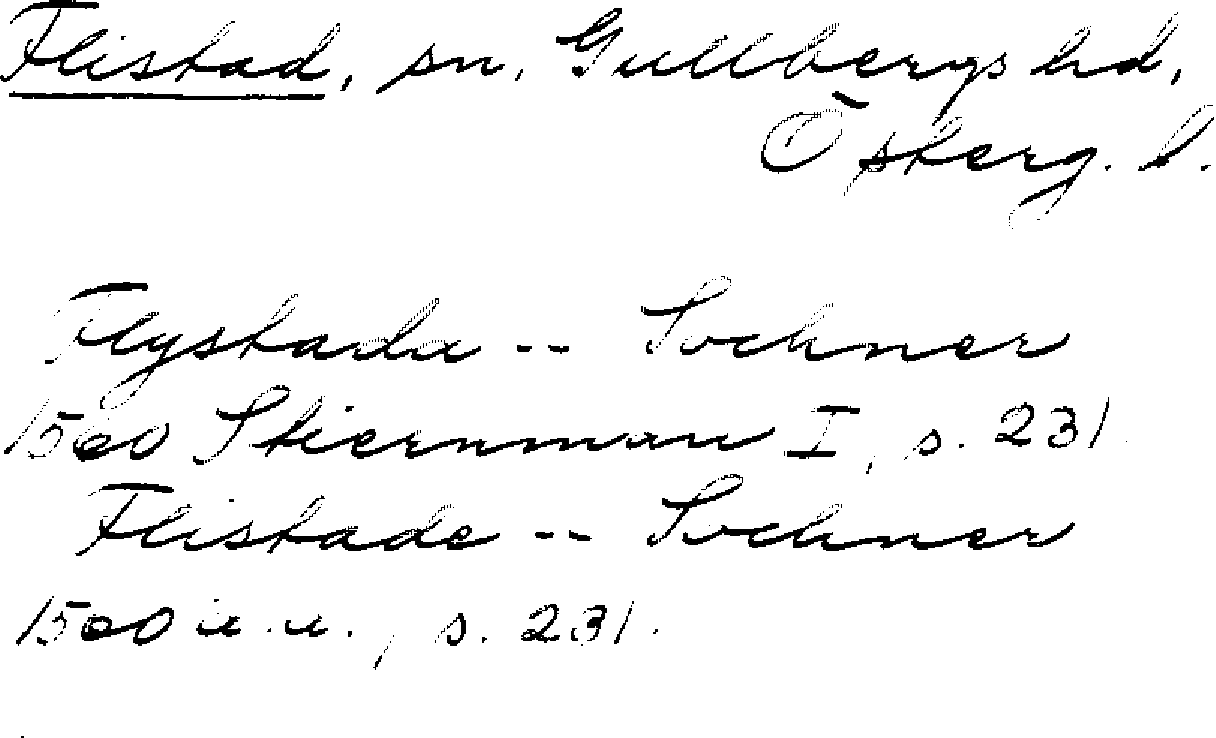 Flistad, sn, Gullbergs hd,
Österg. l.
Flystada -- Sochner
1500 Stiernman I, s. 231.
Flistade -- Sochner
1500 a. a., s. 231.